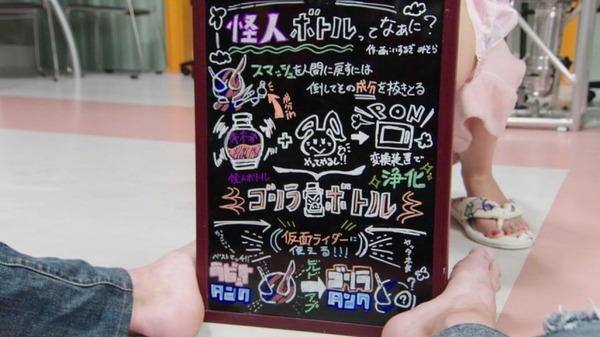 怪人ボトルってなぁに?
作・画:いするぎ みそら
スマッシュを人間に戻すには
倒してその成分を抜きとる
成分in
+
やってやるし!!
PON
怪人ボトル
変換装置で
浄化
ゴリラボトル
仮面ライダーに
使える!!!
ベストマッチ!!
ラビット
タンク
ビルド
アップ
ゴリラ
タンク
?